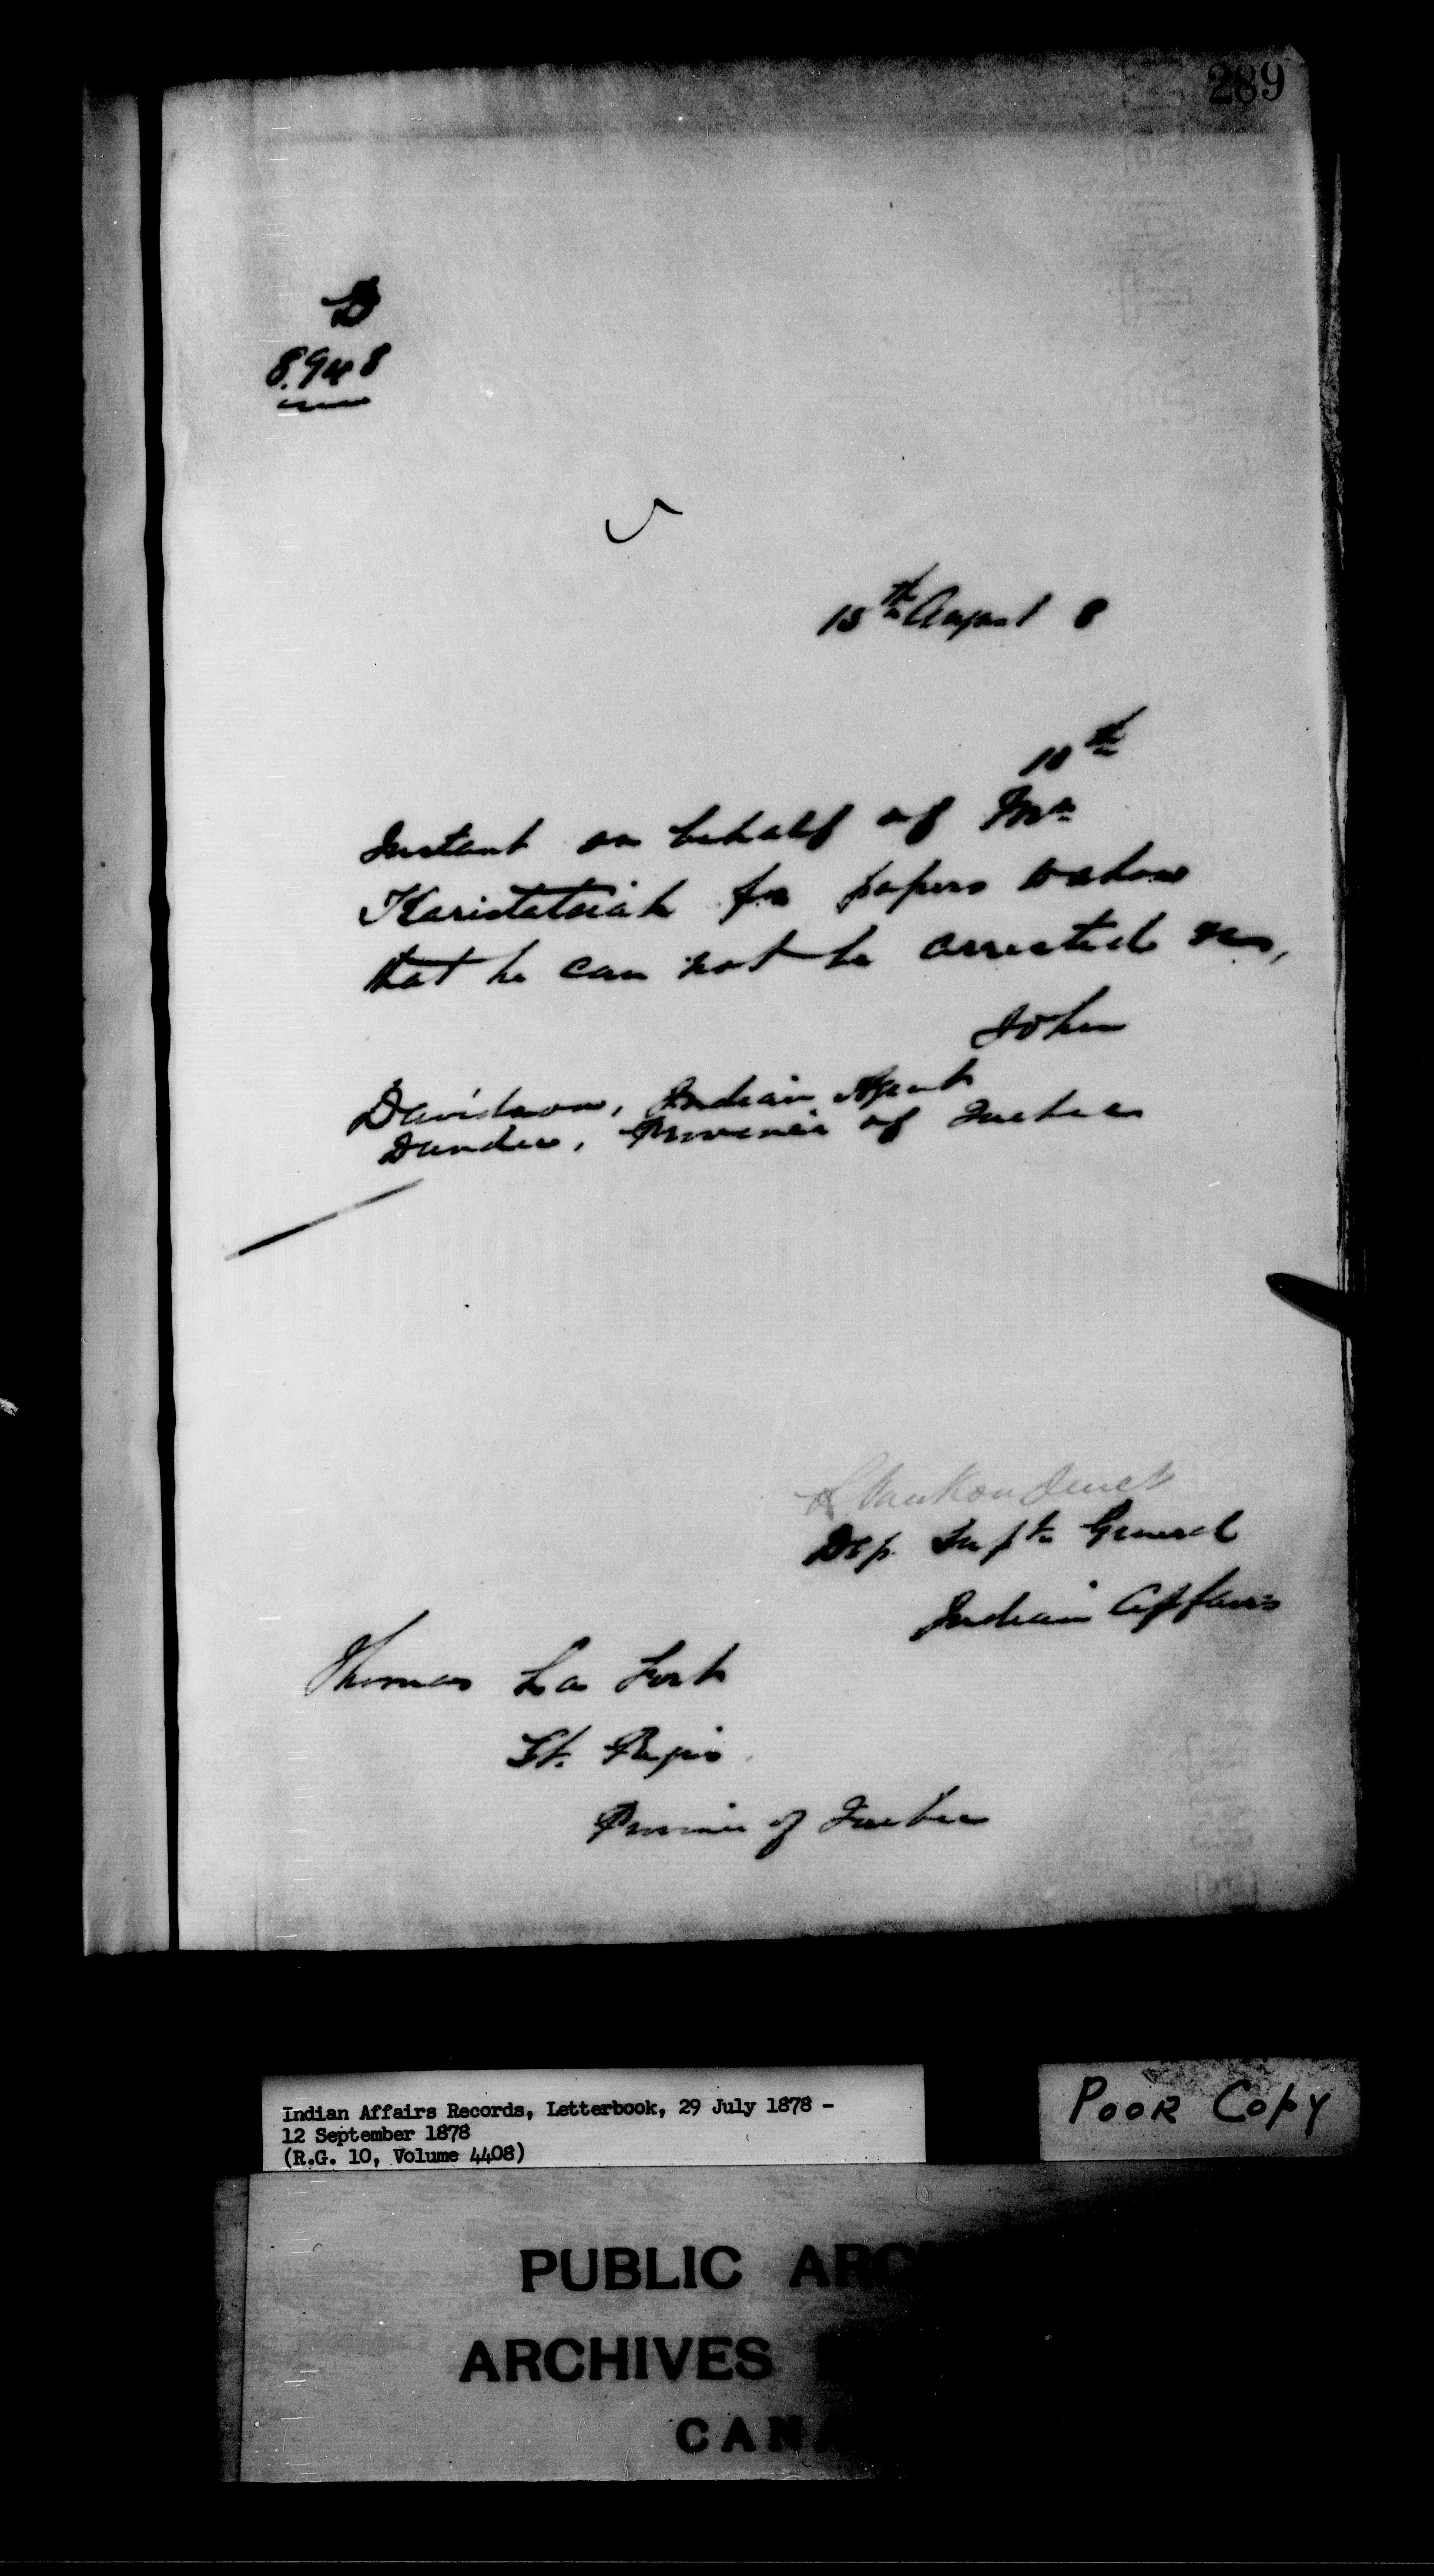 289
D
8.948
15th August 8
10th
Instant on behalf of Mr
Karistatsiah for papers to show
that he can not be arrested
John
Davidson, Indian Agent
Dundee, Province of Quebec
L Vankoughnet
Dep. Supt. General
Indian Affairs
Thomas La Fort
St. Regis
Province of Quebec
Indian Affairs Records, Letterbook, 29 July 1878 -
12 September 1878
(R.G. 10, Volume 4408)
POOR COPY
PUBLIC ARC
ARCHIVES
CANA